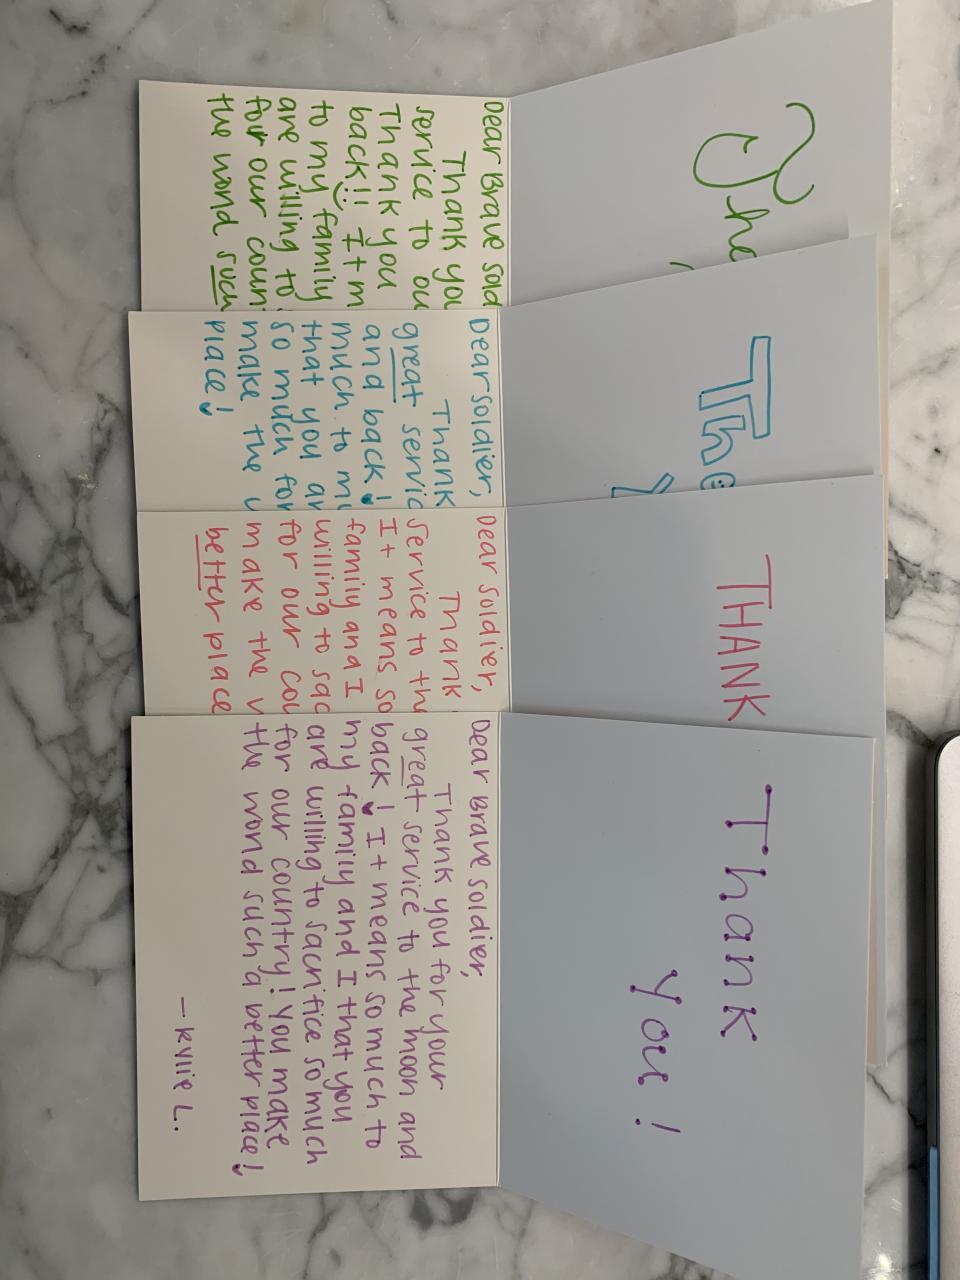 The
Dear Brave Sold
Thank you
service to ou
Thank you
back!! It m
to my family
are willing to
for our coun
the world such
The
Y
Dear soldier,
Thank
great servic
and back!
much to my
that you ar
so much for
make the w
place!
THANK
Dear soldier,
Thank
service to the
It means so
family and I
willing to sac
for our cou
make the w
better place
Thank
you!
Dear Brave soldier,
Thank you for your
great service to the moon and
back! It means so much to
my family and I that you
are willing to sacrifice so much
for our country! You make
the world such a better place!
— Kyllie L.